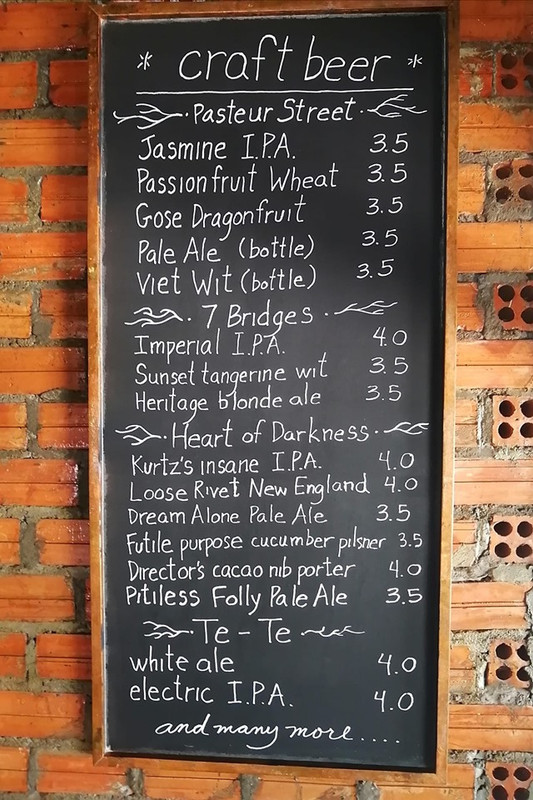 * craft beer *
Pasteur Street
Jasmine I.P.A. 3.5
Passionfruit Wheat 3.5
Gose Dragonfruit 3.5
Pale Ale (bottle) 3.5
Viet Wit (bottle) 3.5
7 Bridges
Imperial I.P.A. 4.0
Sunset tangerine wit 3.5
Heritage blonde ale 3.5
Heart of Darkness
Kurtz's insane I.P.A. 4.0
Loose Rivet New England 4.0
Dream Alone Pale Ale 3.5
Futile purpose cucumber pilsner 3.5
Director's cacao nib porter 4.0
Pitiless Folly Pale Ale 3.5
Te - Te
white ale 4.0
electric I.P.A. 4.0
and many more....